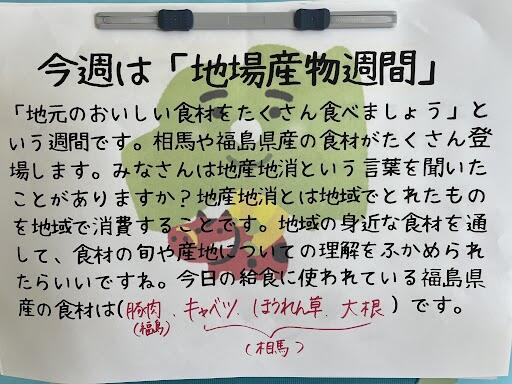 今週は「地場産物週間」
「地元のおいしい食材をたくさん食べましょう」と
いう週間です。相馬や福島県産の食材がたくさん登
場します。みなさんは地産地消という言葉を聞いた
ことがありますか？地産地消とは地域でとれたもの
を地域で消費することです。地域の身近な食材を通
して、食材の旬や産地についての理解をふかめられ
たらいいですね。今日の給食に使われている福島県
産の食材は(豚肉、キャベツ、ほうれん草、大根)です。
(福島)
(相馬)